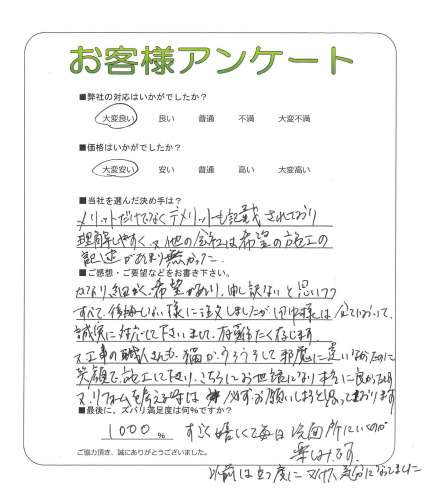 お客様アンケート
■弊社の対応はいかがでしたか？
大変良い 良い 普通 不満 大変不満
■価格はいかがでしたか？
大変安い 安い 普通 高い 大変高い
■当社を選んだ決め手は？
メリットだけでなくデメリットも記載されており
理解しやすく、又他の会社は希望の施工の
記述があまり無かった。
■ご感想・ご要望などをお書き下さい。
かなり細かく希望があり、申し訳ないと思いつつ
すべて、後悔しない様に注文しましたが 様は全てにおいて、
誠実に対応して下さいまして、有難たく存じます。
又工事の職人さんも、猫がうろうろして邪魔に違いなかったのに
笑顔で施工して下さり、こちらこそお世話になり本当に良かったです
又、リフォームを考える時は 必ずお願いしようと思っております
■最後に、ズバリ満足度は何％ですか？
1000 ％ すごく嬉しくて毎日 洗面所にいくのが
楽しみです。
ご協力頂き、誠にありがとうございました。
以前は立つ度に マイナス気分になってました